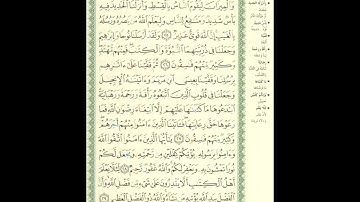 وَالْمِيزَانَ لِيَقُومَ النَّاسُ بِالْقِسْطِ وَأَنزَلْنَا الْحَدِيدَ فِيهِ
بَأْسٌ شَدِيدٌ وَمَنَافِعُ لِلنَّاسِ وَلِيَعْلَمَ اللَّهُ مَن يَنصُرُهُ وَرُسُلَهُ
بِالْغَيْبِ إِنَّ اللَّهَ قَوِيٌّ عَزِيزٌ ۝ وَلَقَدْ أَرْسَلْنَا نُوحًا
وَجَعَلْنَا فِي ذُرِّيَّتِهِمَا النُّبُوَّةَ وَالْكِتَابَ فَمِنْهُم مُّهْتَدٍ
وَكَثِيرٌ مِّنْهُمْ فَاسِقُونَ ۝ ثُمَّ قَفَّيْنَا عَلَىٰ آثَارِهِم
بِرُسُلِنَا وَقَفَّيْنَا بِعِيسَى ابْنِ مَرْيَمَ وَآتَيْنَاهُ الْإِنجِيلَ
وَجَعَلْنَا فِي قُلُوبِ الَّذِينَ اتَّبَعُوهُ رَأْفَةً وَرَحْمَةً وَرَهْبَانِيَّةً
ابْتَدَعُوهَا مَا كَتَبْنَاهَا عَلَيْهِمْ إِلَّا ابْتِغَاءَ رِضْوَانِ اللَّهِ فَمَا
رَعَوْهَا حَقَّ رِعَايَتِهَا فَآتَيْنَا الَّذِينَ آمَنُوا مِنْهُمْ أَجْرَهُمْ
وَكَثِيرٌ مِّنْهُمْ فَاسِقُونَ ۝ يَا أَيُّهَا الَّذِينَ آمَنُوا اتَّقُوا اللَّهَ
وَآمِنُوا بِرَسُولِهِ يُؤْتِكُمْ كِفْلَيْنِ مِن رَّحْمَتِهِ وَيَجْعَل لَّكُمْ
نُورًا تَمْشُونَ بِهِ وَيَغْفِرْ لَكُمْ وَاللَّهُ غَفُورٌ رَّحِيمٌ ۝ لِّئَلَّا يَعْلَمَ
أَهْلُ الْكِتَابِ أَلَّا يَقْدِرُونَ عَلَىٰ شَيْءٍ مِّن فَضْلِ اللَّهِ وَأَنَّ
الْفَضْلَ بِيَدِ اللَّهِ يُؤْتِيهِ مَن يَشَاءُ وَاللَّهُ ذُو الْفَضْلِ الْعَظِيمِ